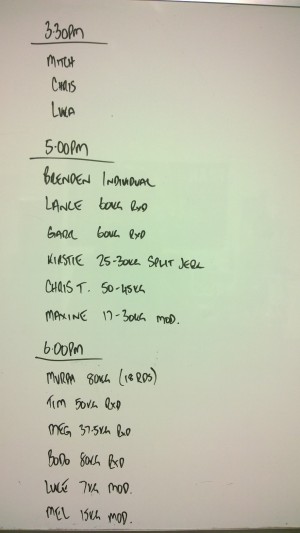 3:30pm
MITCH
CHRIS
LUKA
5:00pm
BRENDEN INDIVIDUAL
LANCE 60KG RXD
GARR 60KG RXD
KIRSTIE 25-30KG SPLIT JERK
CHRIS T. 50-45KG
MAXINE 17-30KG MOD.
6:00pm
MURPH 80KG (18 RDS)
TIM 50KG RXD
MEG 37.5KG RXD
BODO 80KG RXD
LUKE 7KG MOD.
MEL 15KG MOD.